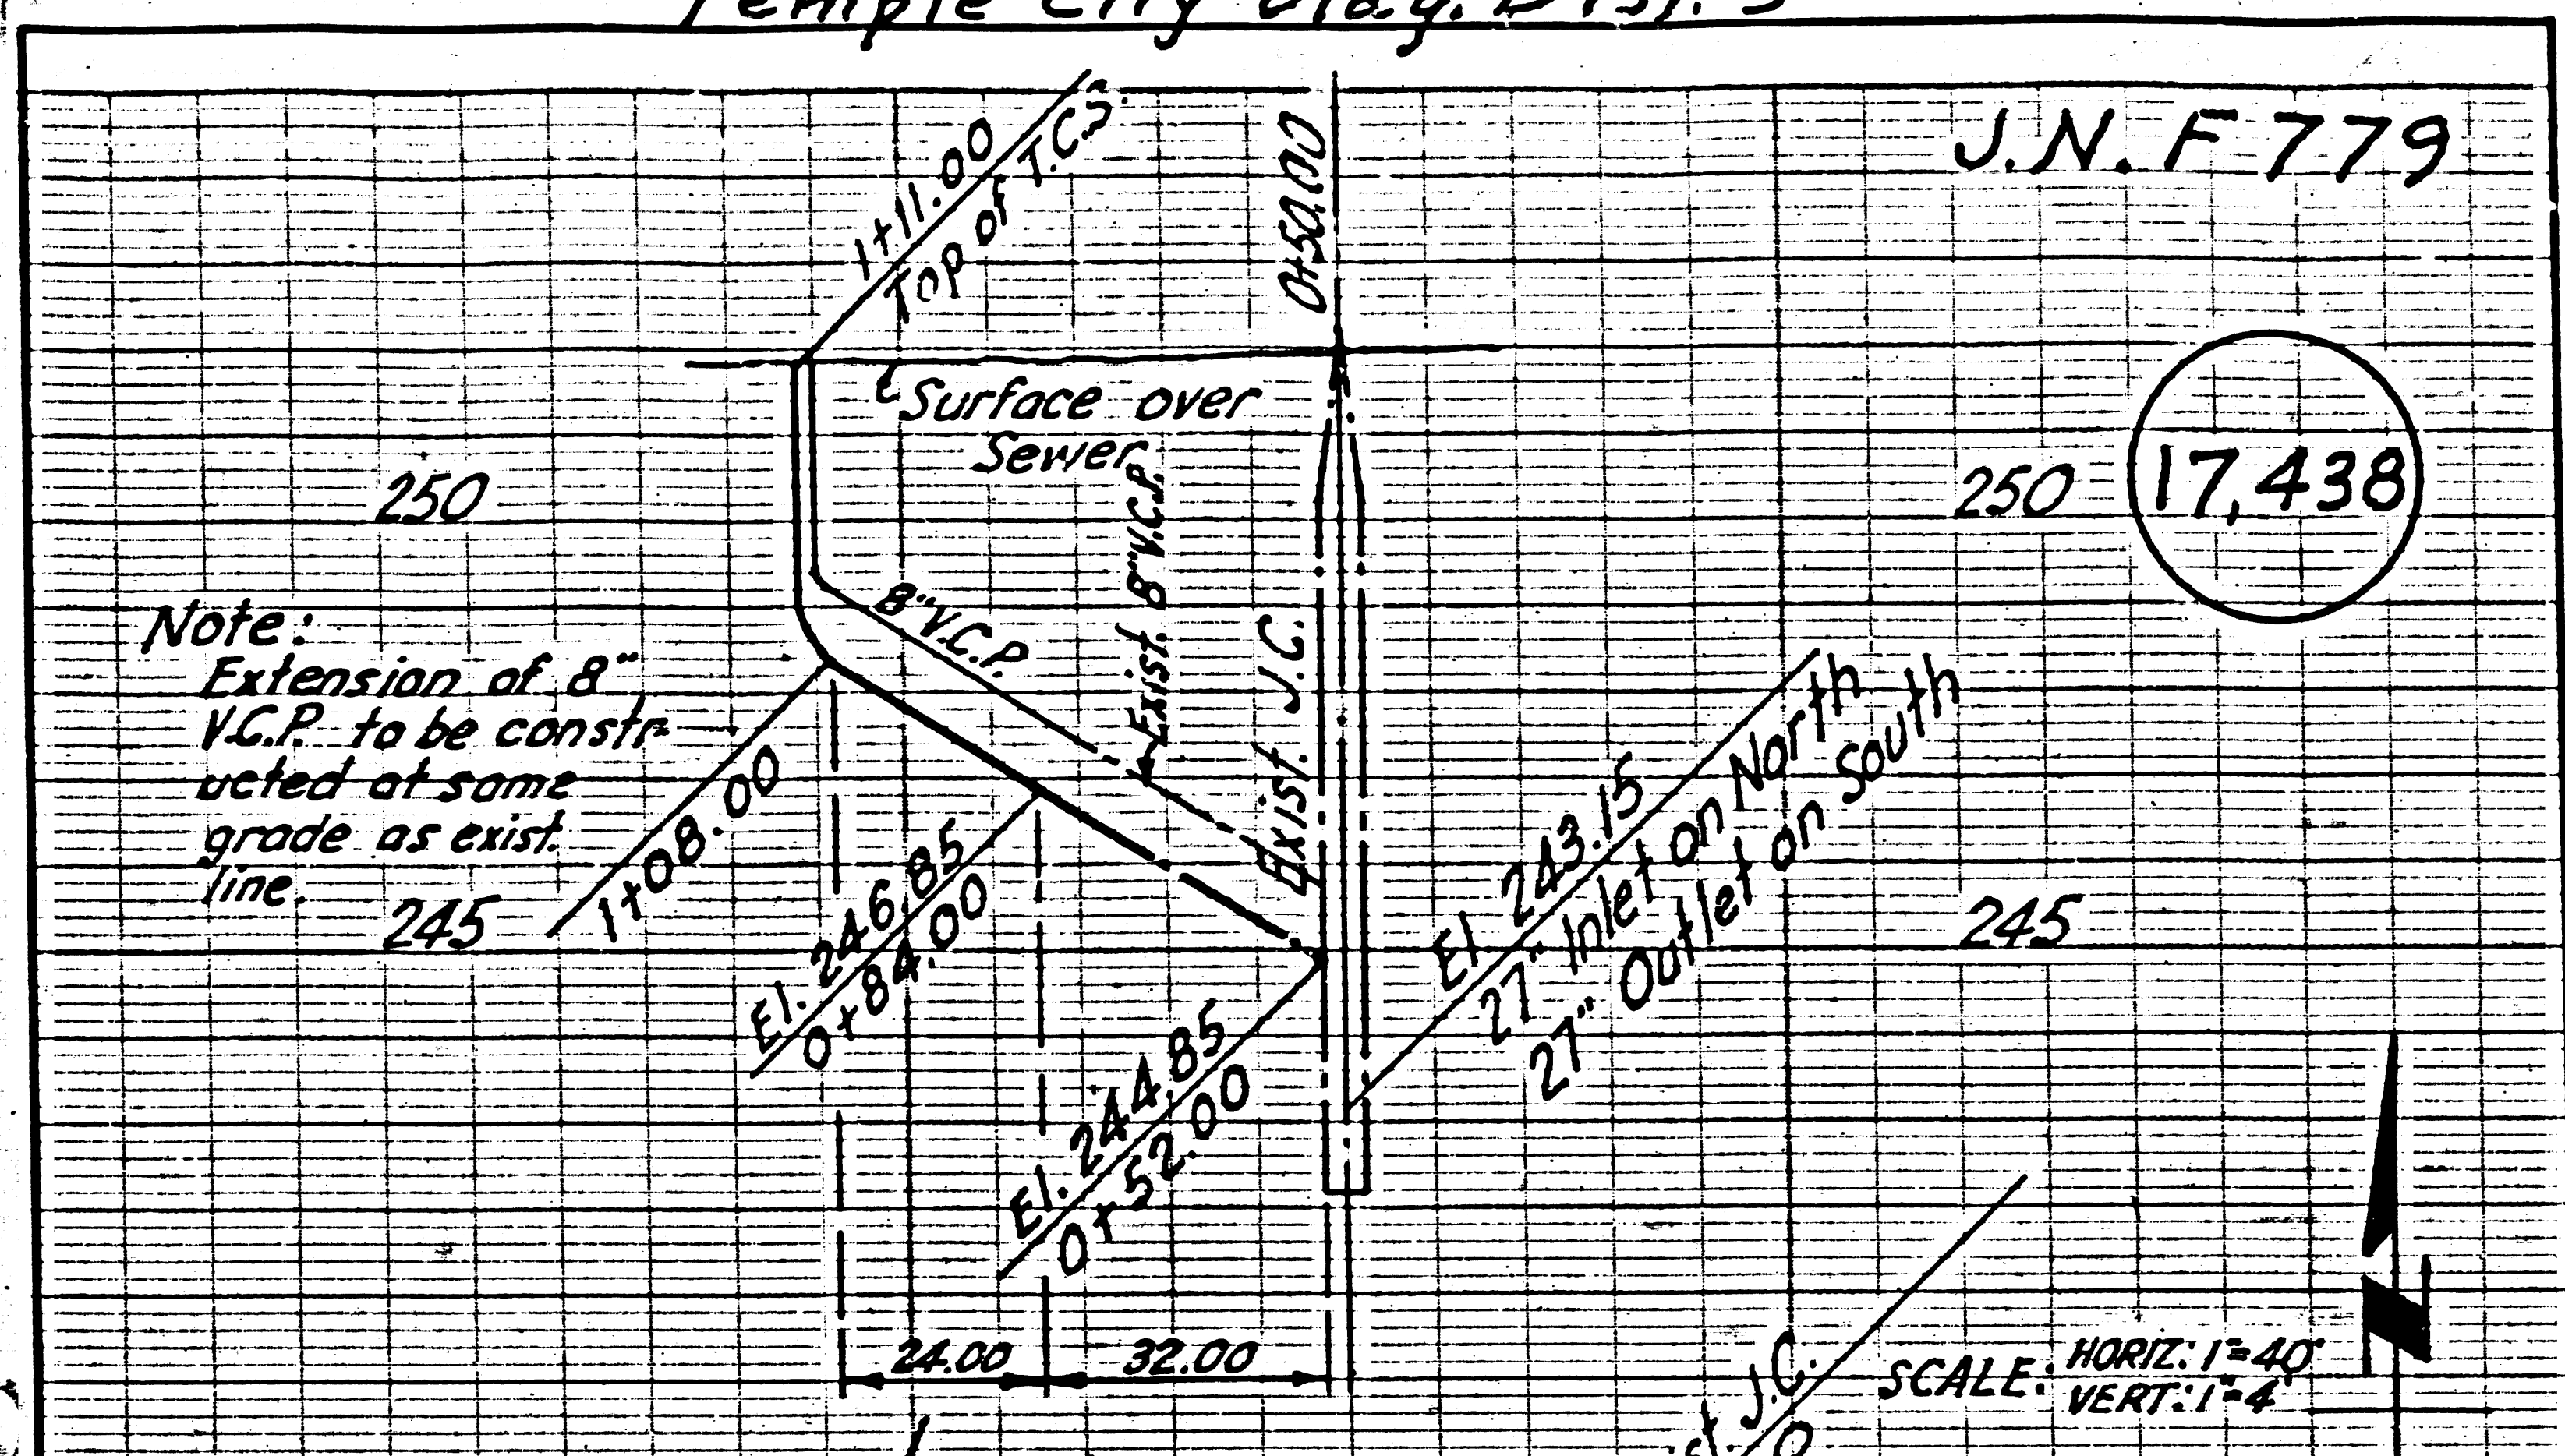 Temple City Bldg. Dist. 5
J.N. F 779
1+11.00
Top of T.C.S.
0+50.00
Surface over
Sewer
250
250
17,438
8" V.C.P.
Exist. 8" V.C.P.
Exist. J.C.
Note:
Extension of 8"
V.C.P. to be constr-
ucted at same
grade as exist.
line.
245
1+08.00
El. 246.85
0+84.00
El. 244.85
0+52.00
El. 243.15
27" Inlet on North
27" Outlet on South
245
24.00
32.00
J.C.
SCALE: HORIZ: 1"=40'
VERT: 1"=4'
N